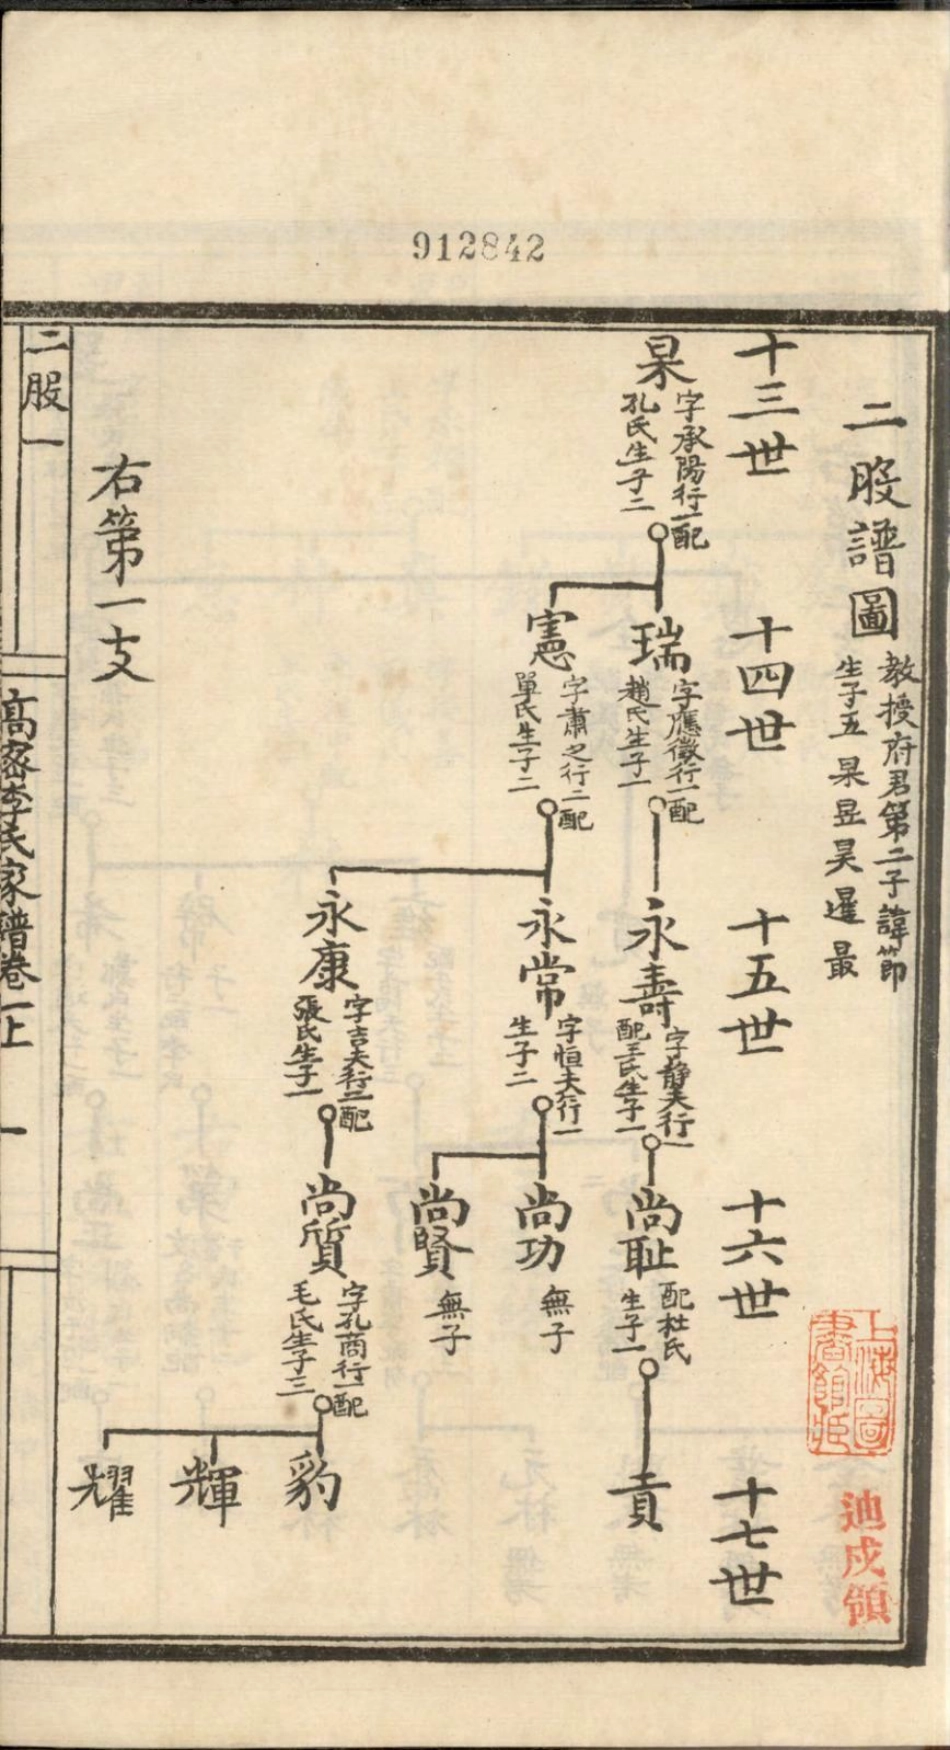 912842
二股譜圖
教授府君第二子諱節
生子五杲昱昊暹最
十三世
十四世
十五世
十六世
十七世
杲
字承陽行一配
孔氏生子二
瑞
字應徵行一配
趙氏生子一
憲
字肅之行二配
單氏生子二
永壽
字靜夫行一
配王氏生子一
永常
字恒夫行一
生子二
永康
字吉夫行二配
張氏生子一
尚耻
配杜氏
生子一
尚功
無子
尚賢
無子
尚質
字孔商行一配
毛氏生子三
貢
豹
輝
耀
右第一支
二股一
高密李氏家譜卷一上
一
上海圖
書館藏
迪戍領